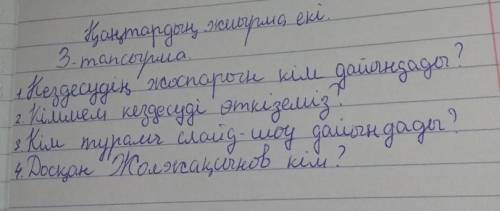 Қаңтардың жиырма екі.
3-тапсырма.
1. Кездесудің жоспарын кім дайындады?
2. Кіммен кездесуді өткіземіз?
3. Кім туралы слайд-шоу дайындады?
4. Досқан Жолжақынов кім?